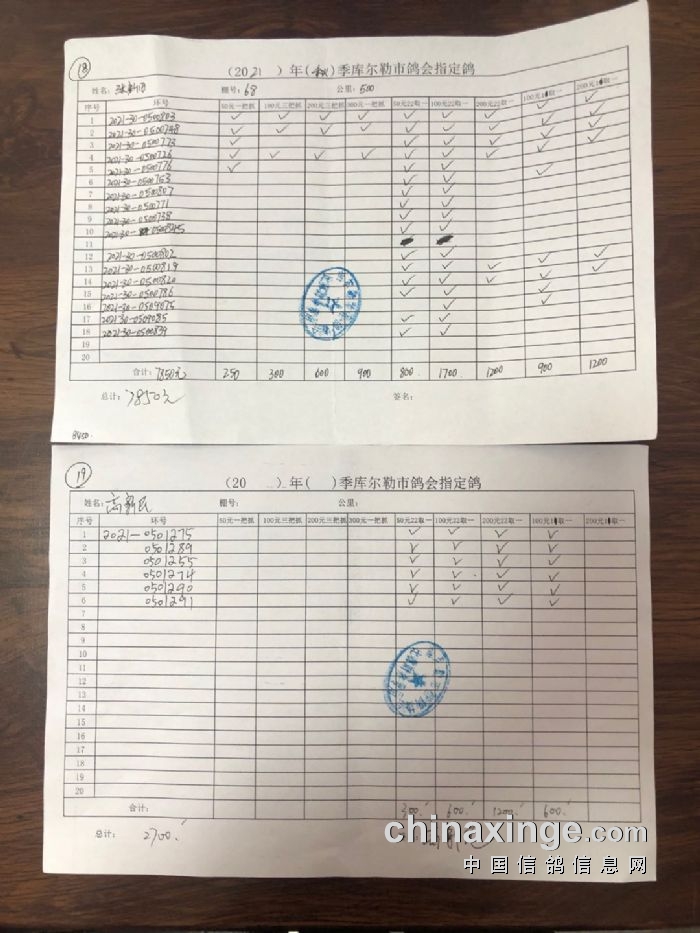 18
(2021 ) 年(秋)季库尔勒市鸽会指定鸽
姓名: 棚号: 68 公里: 500
序号 环号 50元一把抓 100元三把抓 200元三把抓 300元一把抓 50元22取一 100元22取一 200元22取一 100元1 取一 200元1 取一
1 2021-30-0500803 ✓ ✓ ✓ ✓ ✓ ✓ ✓ ✓ ✓
2 2021-30-0500748 ✓ ✓ ✓ ✓ ✓ ✓ ✓ ✓ ✓
3 2021-30-0500773
4 2021-30-0500726
5 2021-30-0500776
6 2021-30-0500753
7 2021-30-0500807
8 2021-30-0500771
9 2021-30-0500738
10 2021-30-0500845
11
12 2021-30-0500802
13 2021-30-0500819
14 2021-30-0500820
15 2021-30-0500786
16 2021-30-0509075
17 2021-30-0509085
18 2021-30-0500839
19
20
合计: 7850元 250 300 600 900 800 1700 1200 900 1200
总计: 7850元 签名:
19
(20 ) 年( )季库尔勒市鸽会指定鸽
姓名: 高新民 棚号: 公里:
序号 环号 50元一把抓 100元三把抓 200元三把抓 300元一把抓 50元22取一 100元22取一 200元22取一 100元1 取一 200元1 取一
1 2021-0501275 ✓ ✓ ✓ ✓
2 0501289 ✓ ✓ ✓ ✓
3 0501255 ✓ ✓ ✓ ✓
4 0501274 ✓ ✓ ✓ ✓
5 0501290 ✓ ✓ ✓ ✓
6 0501291 ✓ ✓ ✓ ✓
7
8
9
10
11
12
13
14
15
16
17
18
19
20
合计: 300 600 1200 600
总计: 2700
chinaxinge.com
中国信鸽信息网